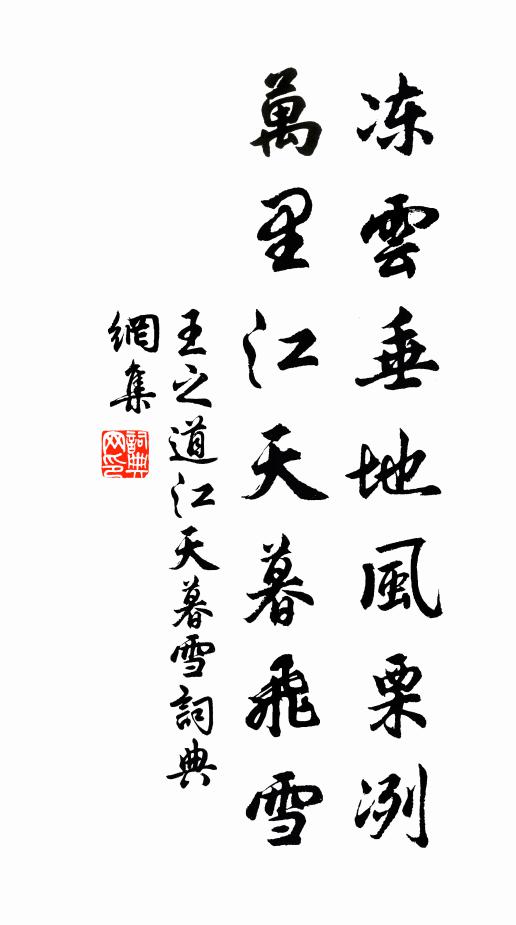 凍雲垂地風栗冽
萬里江天暮飛雪
王之道江天暮雪詞典
網集
詞典網印